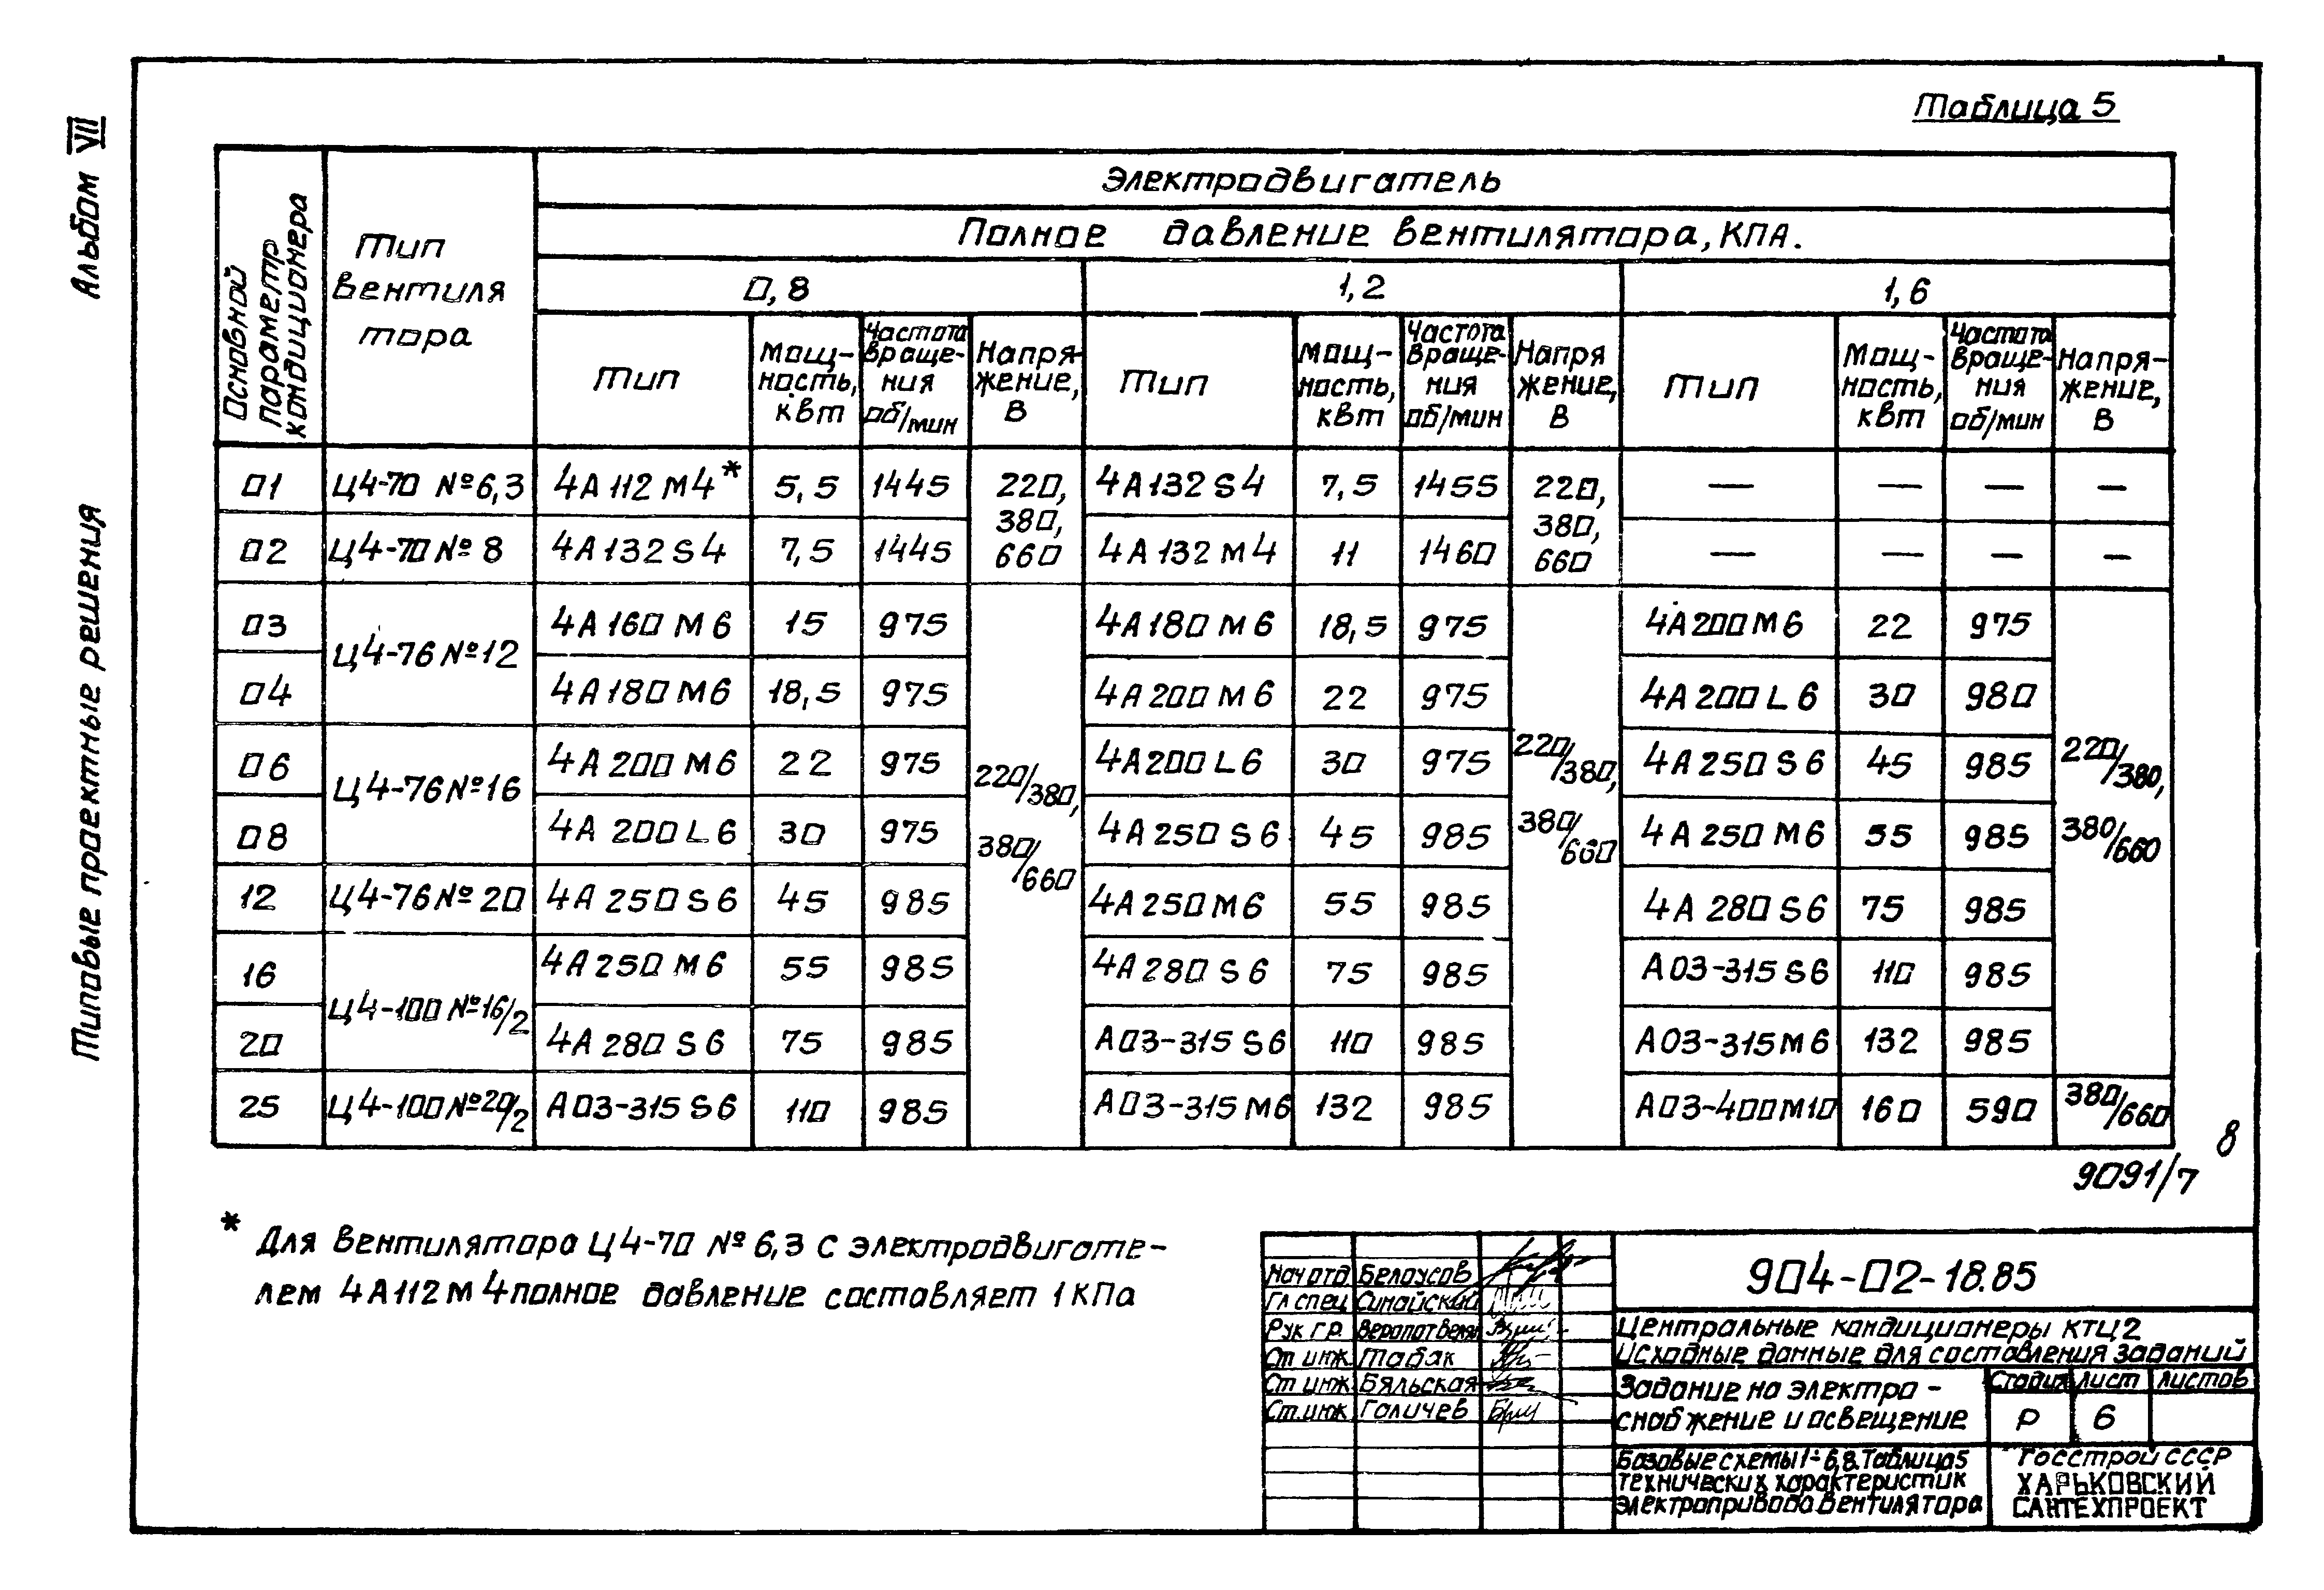 Альбом VII
Типовые проектные решения
Таблица 5
Основной параметр кондиционера
Тип
вентиля
тора
Электродвигатель
Полное давление вентилятора, КПА.
0,8 1,2 1,6
Тип Мощ-ность, квт Частота враще-ния об/мин Напря-жение, В Тип Мощ-ность, квт Частота враще-ния об/мин Напря жение, В Тип Мощ-ность, квт Частота враще-ния об/мин Напря-жение, В
01 Ц4-70 №6,3 4А112М4* 5,5 1445 220, 380, 660 4А132S4 7,5 1455 220, 380, 660 — — — —
02 Ц4-70 №8 4А132S4 7,5 1445 4А132М4 11 1460 — — — —
03 Ц4-76 №12 4А160М6 15 975 220/380, 380/660 4А180М6 18,5 975 220/380, 380/660 4А200М6 22 975 220/380, 380/660
04 4А180М6 18,5 975 4А200М6 22 975 4А200L6 30 980
06 Ц4-76 №16 4А200М6 22 975 4А200L6 30 975 4А250S6 45 985
08 4А200L6 30 975 4А250S6 45 985 4А250М6 55 985
12 Ц4-76 №20 4А250S6 45 985 4А250М6 55 985 4А280S6 75 985
16 Ц4-100 №16/2 4А250М6 55 985 4А280S6 75 985 А03-315S6 110 985
20 4А280S6 75 985 А03-315S6 110 985 А03-315М6 132 985
25 Ц4-100 №20/2 А03-315S6 110 985 А03-315М6 132 985 А03-400М10 160 590 380/660
8
9091/7
* Для вентилятора Ц4-70 №6,3 с электродвигате-
лем 4А112М4 полное давление составляет 1КПа
Нач отд Белоусов
Гл спец Синайский
Рук гр.
Ст инж Табак
Ст инж Бяльская
Ст.инж Галичев
904-02-18.85
Центральные кондиционеры КТЦ2
Исходные данные для составления заданий
Задание на электро-
снабжение и освещение
Стадия Лист Листов
Р 6
Базовые схемы 1÷6,8. Таблица 5
технических характеристик
электропривода вентилятора
Госстрой СССР
ХАРЬКОВСКИЙ
САНТЕХПРОЕКТ